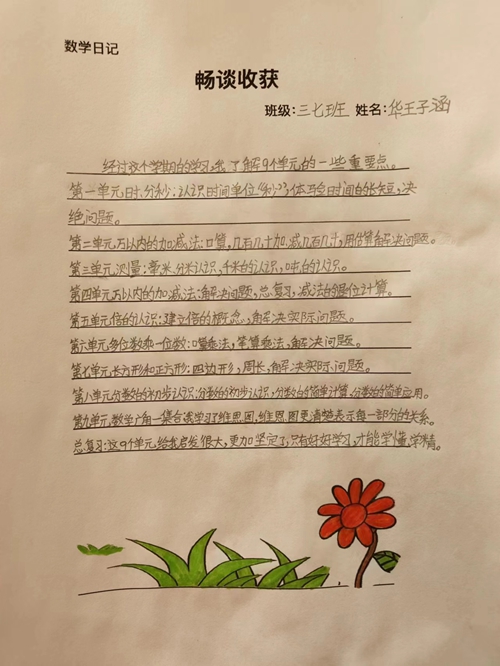 数学日记
畅谈收获
班级:三七班 姓名:华王子涵
经过这个学期的学习,我了解9个单元的一些重要点。
第一单元时、分秒:认识时间单位(秒),体验时间的长短,决
绝问题。
第二单元万以内的加减法:口算,几百几十加、减几百几十,用估算解决问题。
第三单元测量:毫米、分米认识,千米的认识,吨的认识。
第四单元万以内的加减法:解决问题,总复习,减法的笔算计算。
第五单元倍的认识:建立倍的概念,解决实际问题。
第六单元多位数乘一位数:口算乘法,笔算乘法,解决问题。
第七单元长方形和正方形:四边形,周长,解决实际问题。
第八单元分数的初步认识:分数的初步认识,分数的简单计算,分数的简单应用。
第九单元,数学广角—集合:我学习了维恩图,维恩图更清楚表示每一部分的关系。
总复习:这9个单元,给我启发很大,更加坚定了,只有好好学习,才能学懂,学精。